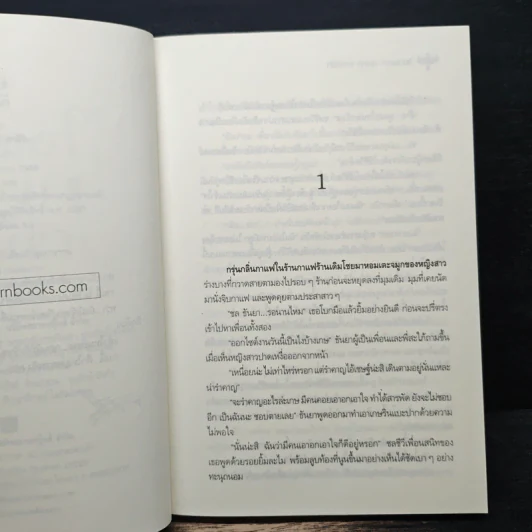 rnbooks.com
1
กรุ่นกลิ่นกาแฟในร้านกาแฟร้านเดิมโชยมาหอมเตะจมูกของหญิงสาว
ร่างบางที่กวาดสายตามองไปรอบ ๆ ร้านก่อนจะหยุดลงที่มุมเดิม มุมที่เคยนัด
มานั่งจิบกาแฟ และพูดคุยตามประสาสาว ๆ
"ชล ขันยา...รอนานไหม" เธอโบกมือแล้วยิ้มอย่างยินดี ก่อนจะปรี่ตรง
เข้าไปหาเพื่อนทั้งสอง
"ออกไซต์งานวันนี้เป็นไงบ้างเกษ" ขันยาผู้เป็นเพื่อนและพี่สะใภ้ถามขึ้น
เมื่อเห็นหญิงสาวปาดเหงื่อออกจากหน้า
"เหนื่อยน่ะ ไม่เท่าไหร่หรอก แต่รำคาญไอ้เชษฐ์น่ะสิ เดินตามอยู่นั่นแหละ
น่ารำคาญ"
"จะรำคาญอะไรล่ะเกษ มีคนคอยเอาอกเอาใจ ทำโน่นสารพัด ยังจะไม่ชอบ
อีก เป็นฉันนะ ชอบตายเลย" ขันยาพูดออกมาทำเอาเกษรินแบะปากด้วยความ
ไม่พอใจ
"นั่นน่ะสิ ฉันว่ามีคนเอาอกเอาใจก็ดีอยู่หรอก" ชลชีวีเพื่อนสนิทของ
เธอพูดด้วยรอยยิ้มละไม พร้อมลูบท้องที่นูนขึ้นมาอย่างเห็นได้ชัดเบา ๆ อย่าง
ทะนุถนอม